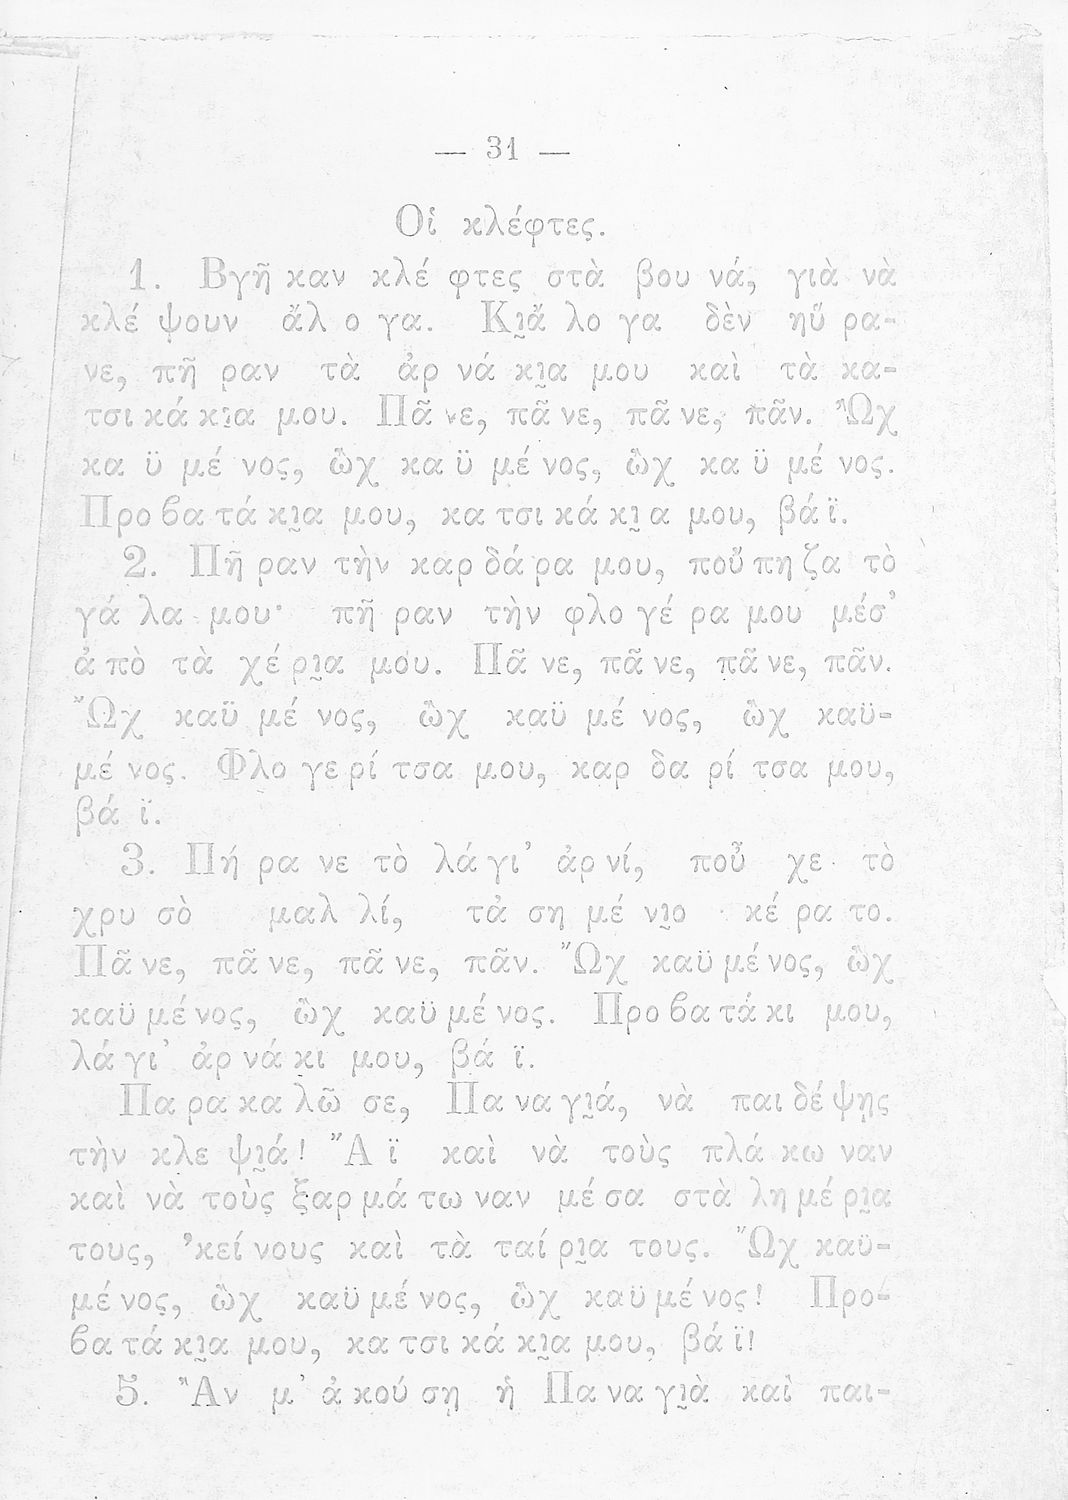 — 31 —
Οἱ κλέφτες.
1. Βγῆ καν κλέ φτες στὰ βου νά, γιὰ νὰ
κλέ ψουν ἄλ ο γα. Κι̯ἄ λο γα δὲν ηὕ ρα-
νε, πῆ ραν τὰ ἀρ νά κι̯α μου καὶ τὰ κα-
τσι κά κι̯α μου. Πᾶ νε, πᾶ νε, πᾶ νε, πᾶν. Ὢχ
κα ϋ μέ νος, ὢχ κα ϋ μέ νος, ὢχ κα ϋ μέ νος.
Προ βα τά κι̯α μου, κα τσι κά κι̯ α μου, βά ϊ.
2. Πῆ ραν τὴν καρ δά ρα μου, ποὔ πη ζα τὸ
γά λα μου· πῆ ραν τὴν φλο γέ ρα μου μέσ’
ἀ πὸ τὰ χέ ρι̯α μου. Πᾶ νε, πᾶ νε, πᾶ νε, πᾶν.
Ὢχ καϋ μέ νος, ὢχ καϋ μέ νος, ὢχ καϋ-
μέ νος. Φλο γε ρί τσα μου, καρ δα ρί τσα μου,
βά ϊ.
3. Πή ρα νε τὸ λά γι’ ἀρ νί, ποὖ χε τὸ
χρυ σὸ μαλ λί, τἀ ση μέ νι̯ο κέ ρα το.
Πᾶ νε, πᾶ νε, πᾶ νε, πᾶν. Ὢχ καϋ μέ νος, ὢχ
καϋ μέ νος, ὢχ καϋ μέ νος. Προ βα τά κι μου,
λά γι’ ἀρ νά κι μου, βά ϊ.
Πα ρα κα λῶ σε, Πα να γι̯ά, νὰ παι δέ ψῃς
τὴν κλε ψι̯ά! Ἄ ϊ καὶ νὰ τοὺς πλά κω ναν
καὶ νὰ τοὺς ξαρ μά τω ναν μέ σα στὰ λη μέ ρι̯α
τους, ’κεί νους καὶ τὰ ταί ρι̯α τους. Ὢχ καϋ-
μέ νος, ὢχ καϋ μέ νος, ὢχ καϋ μέ νος! Προ-
βα τά κι̯α μου, κα τσι κά κι̯α μου, βά ϊ!
5. Ἂν μ’ ἀ κού σῃ ἡ Πα να γι̯ὰ καὶ παι-